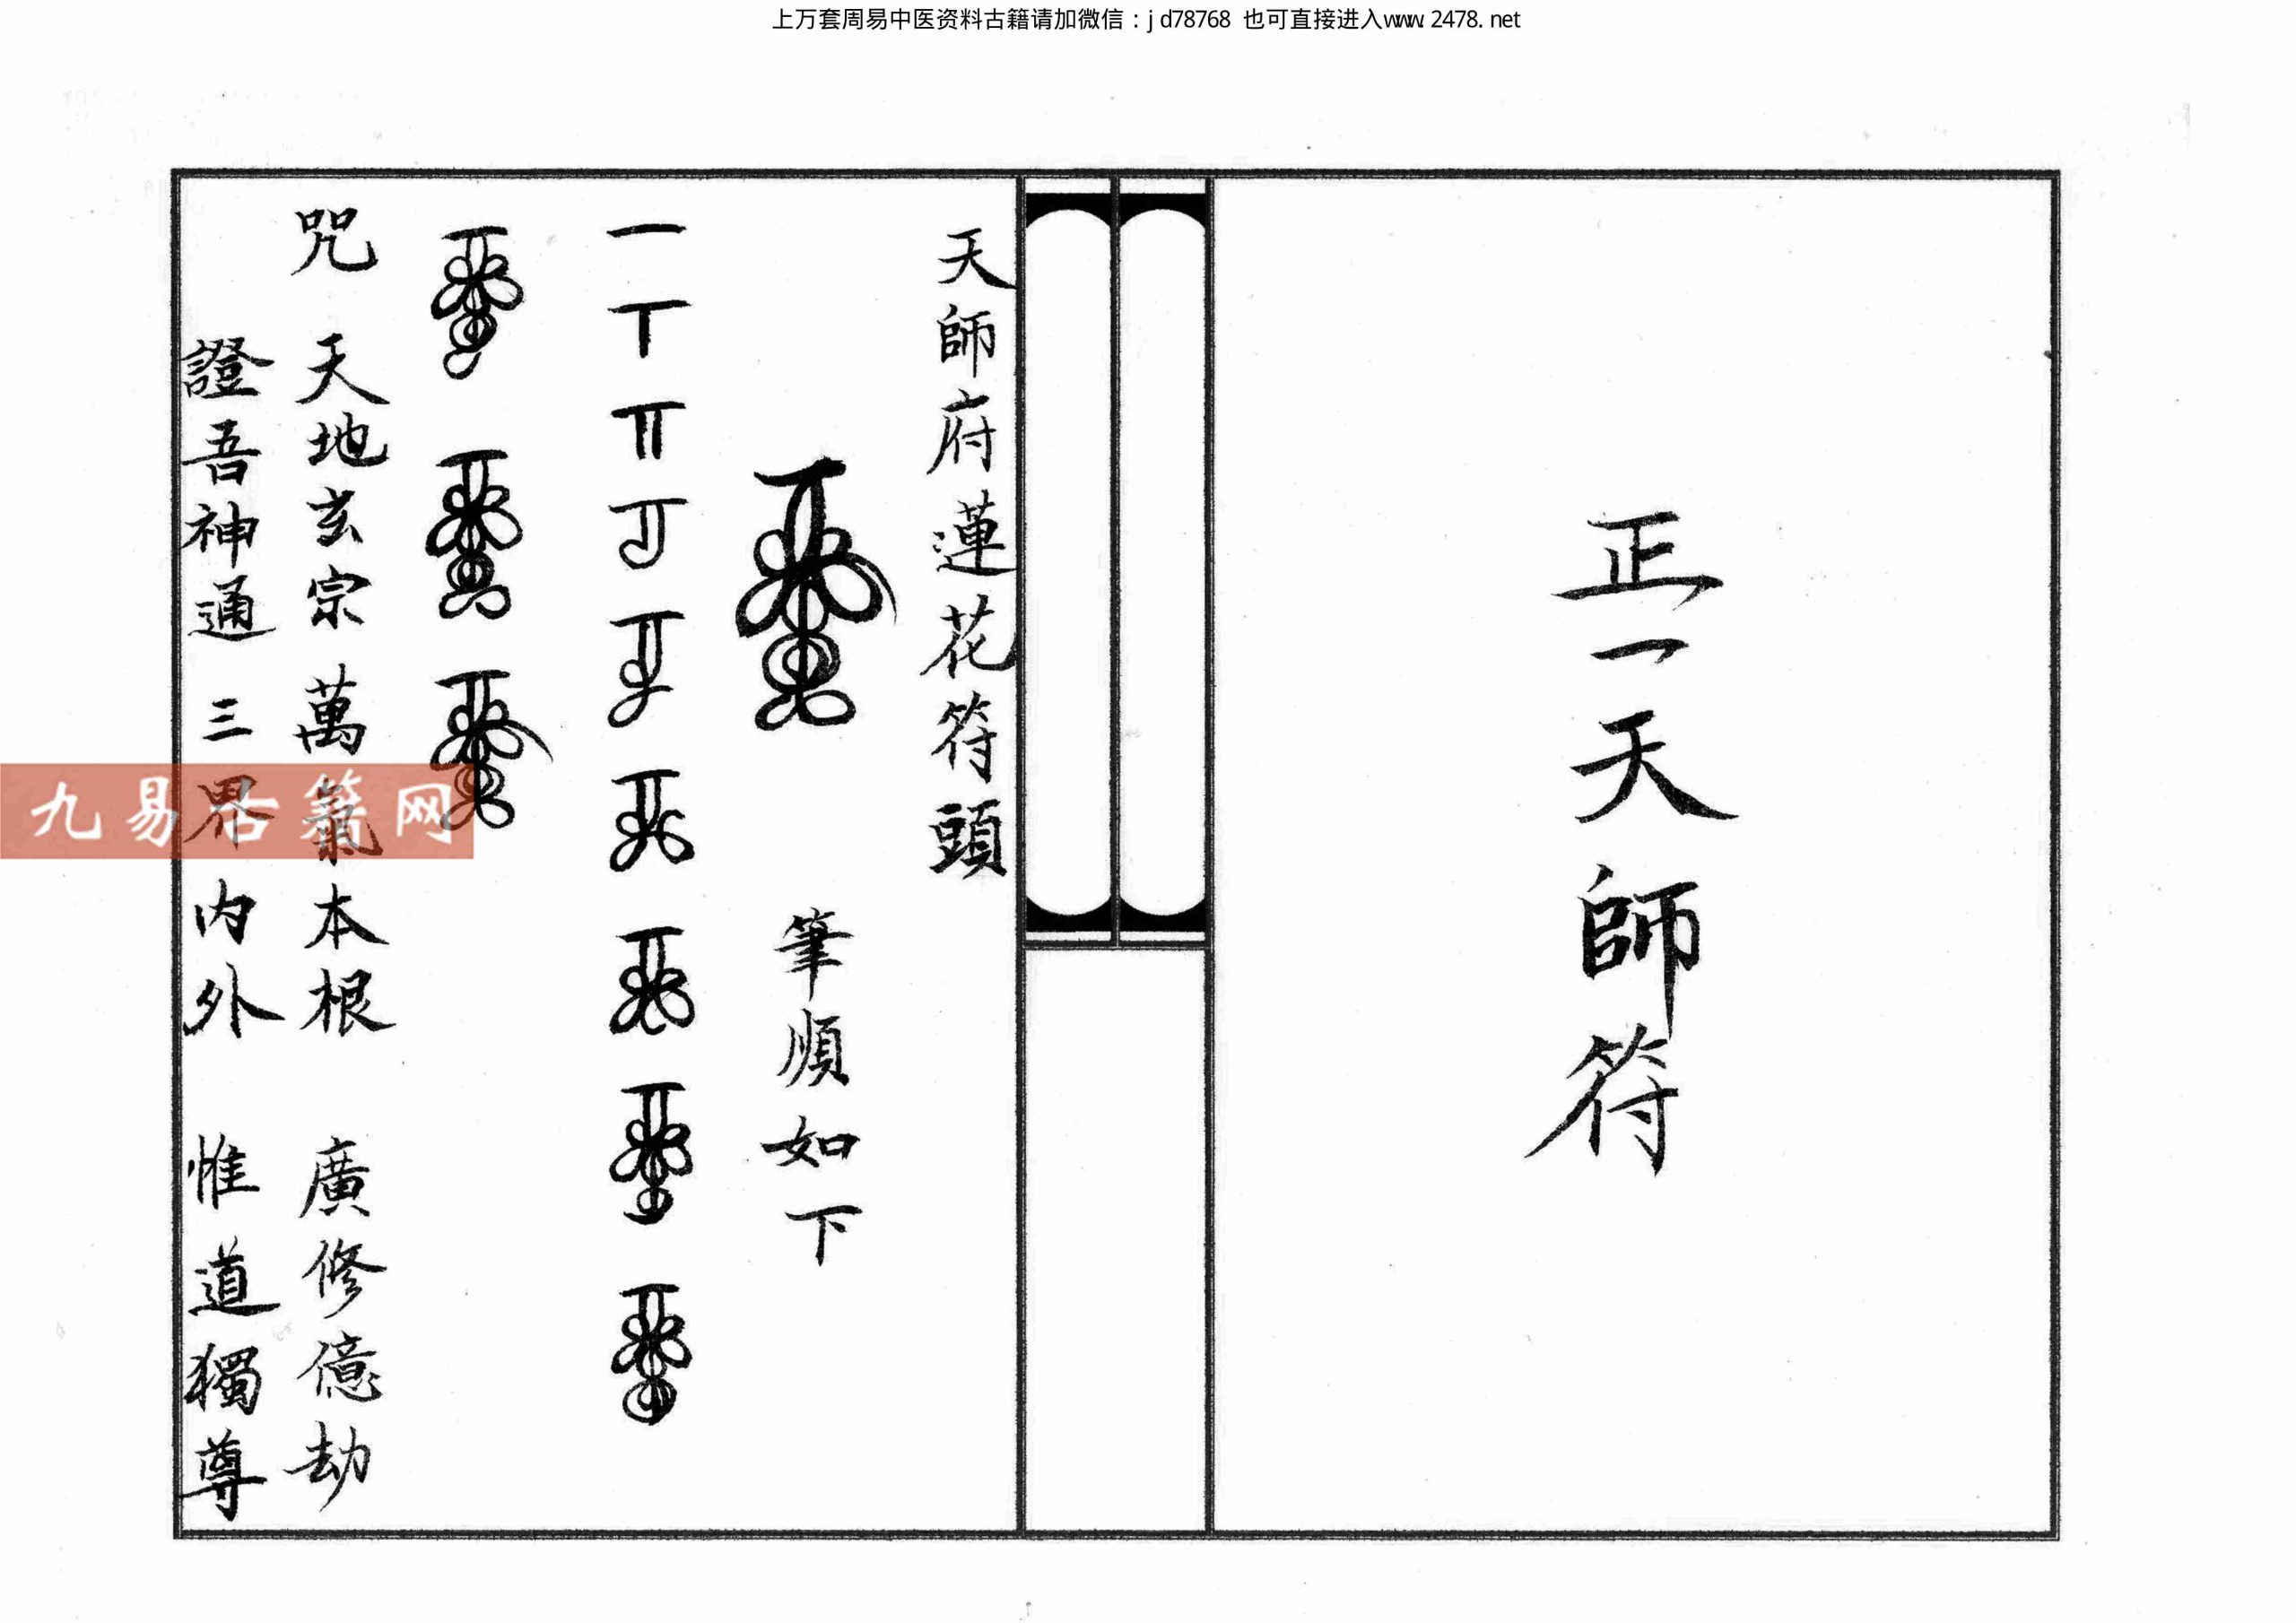 上万套周易中医资料古籍请加微信：jd78768 也可直接进入www.2478.net
正一天師符
天師府蓮花符頭
筆順如下
咒 天地玄宗 萬氣本根 廣修億劫
證吾神通 三界內外 惟道獨尊
九易古籍网